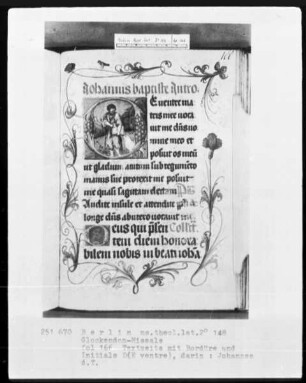 Johannis baptiste Intro.
E ventre ma
tris mee uoca
uit me dñs no
mine meo et
posuit os meũ
ut gladium acutum sub tegumẽto
manus sue protexit me posuit
me quasi sagittam electam
Audite insule et attendite
longe dñs ab utero uocauit
eus qui p̃sen Collec
tem diem honora
bilem nobis in beati ioha
251 670 Berlin ms.theol.lat.2° 148
Glockendon-Missale
fol 166 Textseite mit Bordüre und
Initiale D(E ventre), darin : Johannes
d.T.